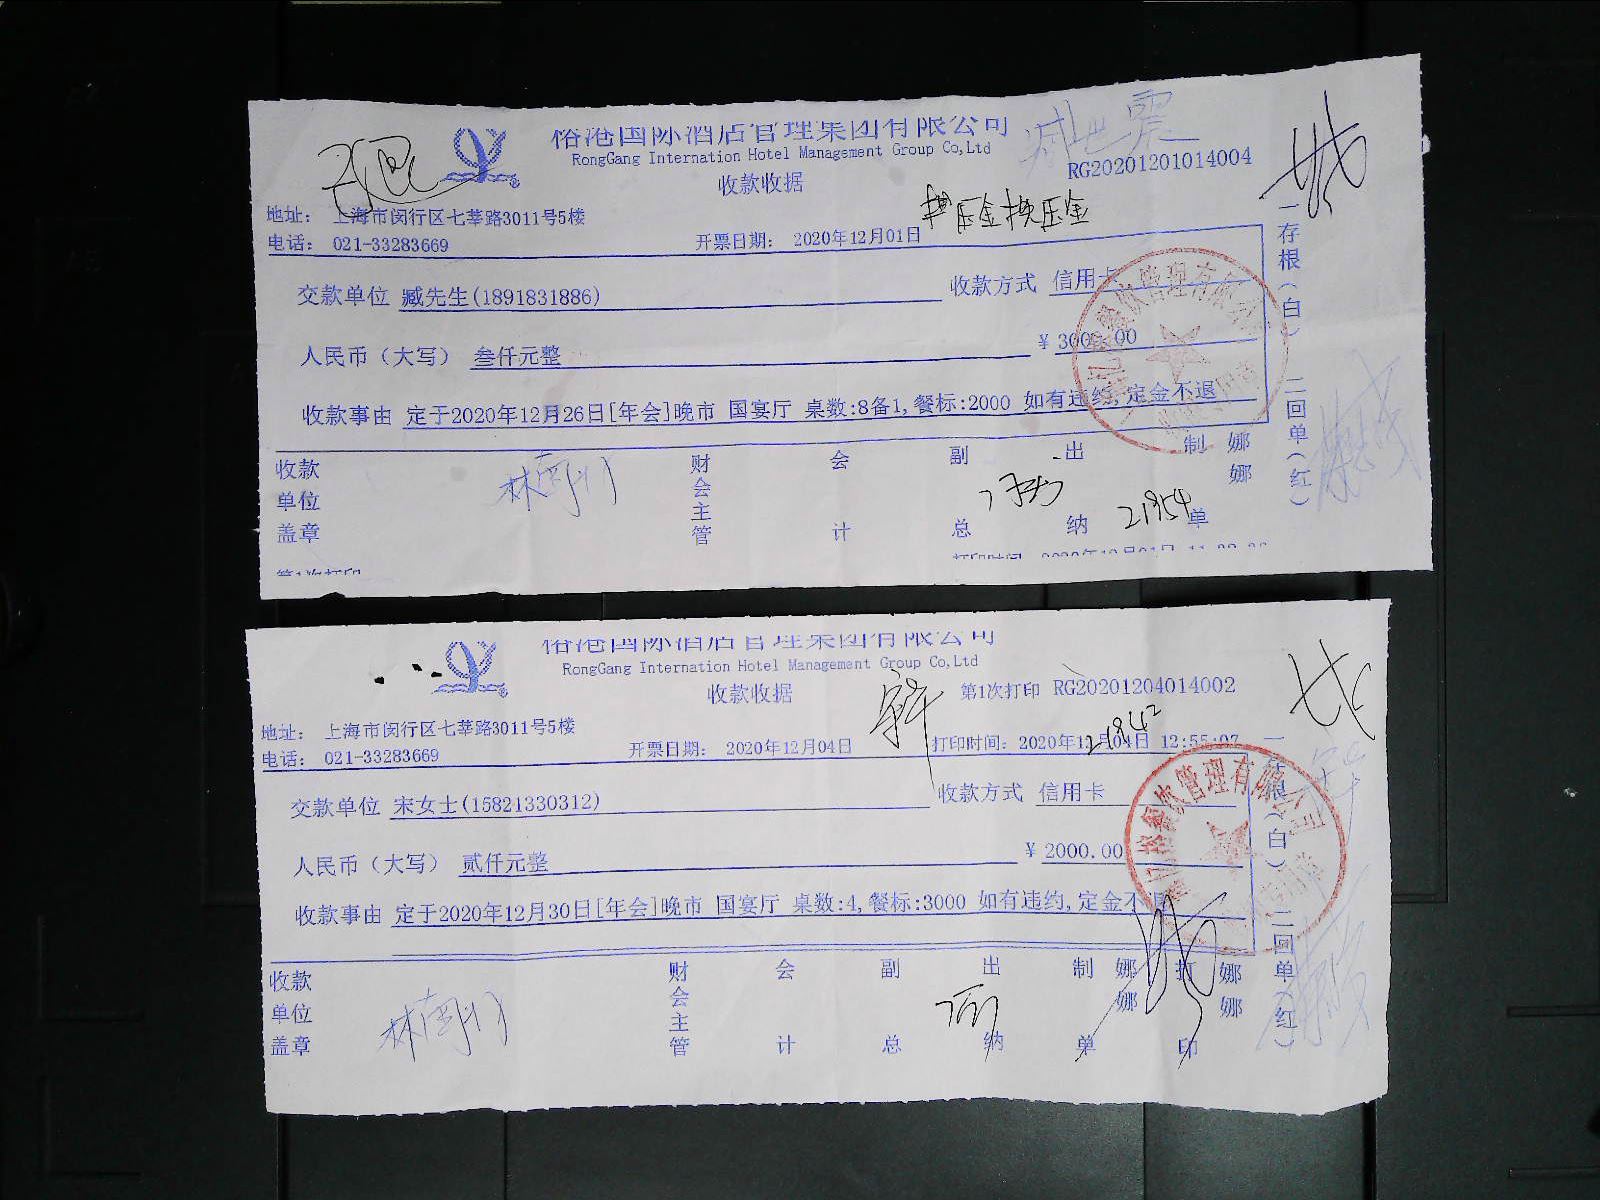 裕港国际酒店管理集团有限公司
RongGang Internation Hotel Management Group Co,Ltd
收款收据
RG20201201014004
押金换压金
地址： 上海市闵行区七莘路3011号5楼
电话： 021-33283669
开票日期： 2020年12月01日
交款单位 臧先生(1891831886)
收款方式 信用卡
人民币（大写） 叁仟元整
¥ 3000.00
收款事由 定于2020年12月26日[年会]晚市 国宴厅 桌数:8备1,餐标:2000 如有违约,定金不退
一存根（白） 二回单（红）
收款单位盖章
财会主管
会计
副总
出纳
制单
娜娜
21954
第1次打印
打印时间: 2020年12月01日
裕港国际酒店管理集团有限公司
RongGang Internation Hotel Management Group Co,Ltd
收款收据
第1次打印 RG20201204014002
地址： 上海市闵行区七莘路3011号5楼
电话： 021-33283669
开票日期： 2020年12月04日
打印时间: 2020年12月04日 12:55:07
交款单位 宋女士(15821330312)
收款方式 信用卡
人民币（大写） 贰仟元整
¥ 2000.00
收款事由 定于2020年12月30日[年会]晚市 国宴厅 桌数:4,餐标:3000 如有违约,定金不退
一存根（白） 二回单（红）
收款单位盖章
财会主管
会计
副总
出纳
制单
娜娜
打印
娜娜